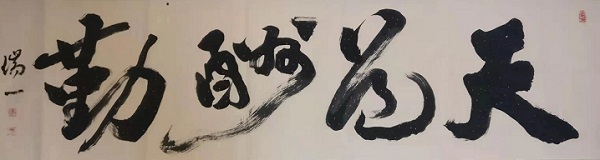 天道酬勤
瑞一